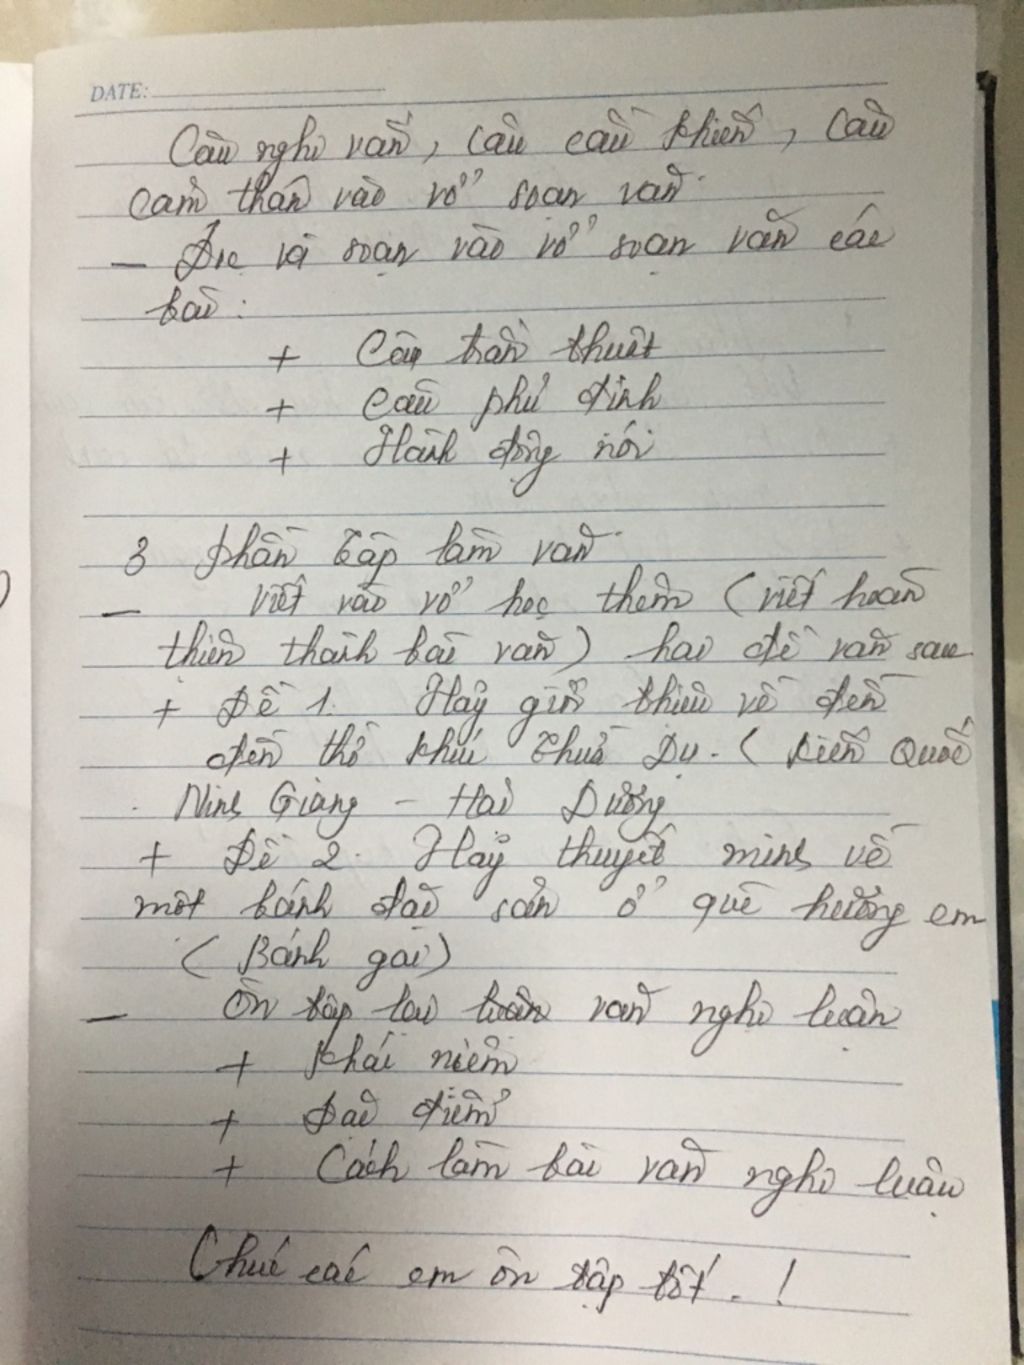 DATE:
Câu nghi vấn, câu cầu khiến, câu
cảm thán vào vở soạn văn.
- Đọc và soạn vào vở soạn văn các
bài:
+ Câu trần thuật
+ Câu phủ định
+ Hành động nói
3 Phần tập làm văn
- Viết vào vở học thêm (viết hoàn
thiện thành bài văn) hai đề văn sau
+ Đề 1. Hãy giới thiệu về đền
đền thờ Khúc Thừa Dụ. (Kiến Quốc
Ninh Giang - Hải Dương
+ Đề 2. Hãy thuyết minh về
một bánh đặc sản ở quê hương em
(Bánh gai)
- Ôn tập lại luận văn nghị luận
+ Khái niệm
+ Đặc điểm
+ Cách làm bài văn nghị luận
Chúc các em ôn tập tốt. !